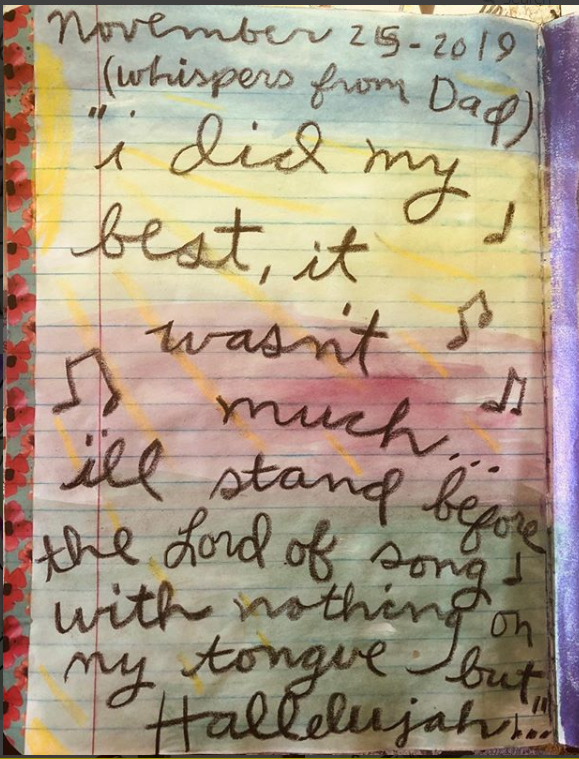 November 25-2019
(whispers from Dad)
"i did my
best, it
wasn't
much...
i'll stand before
the Lord of song
with nothing on
my tongue but
Hallelujah!..."